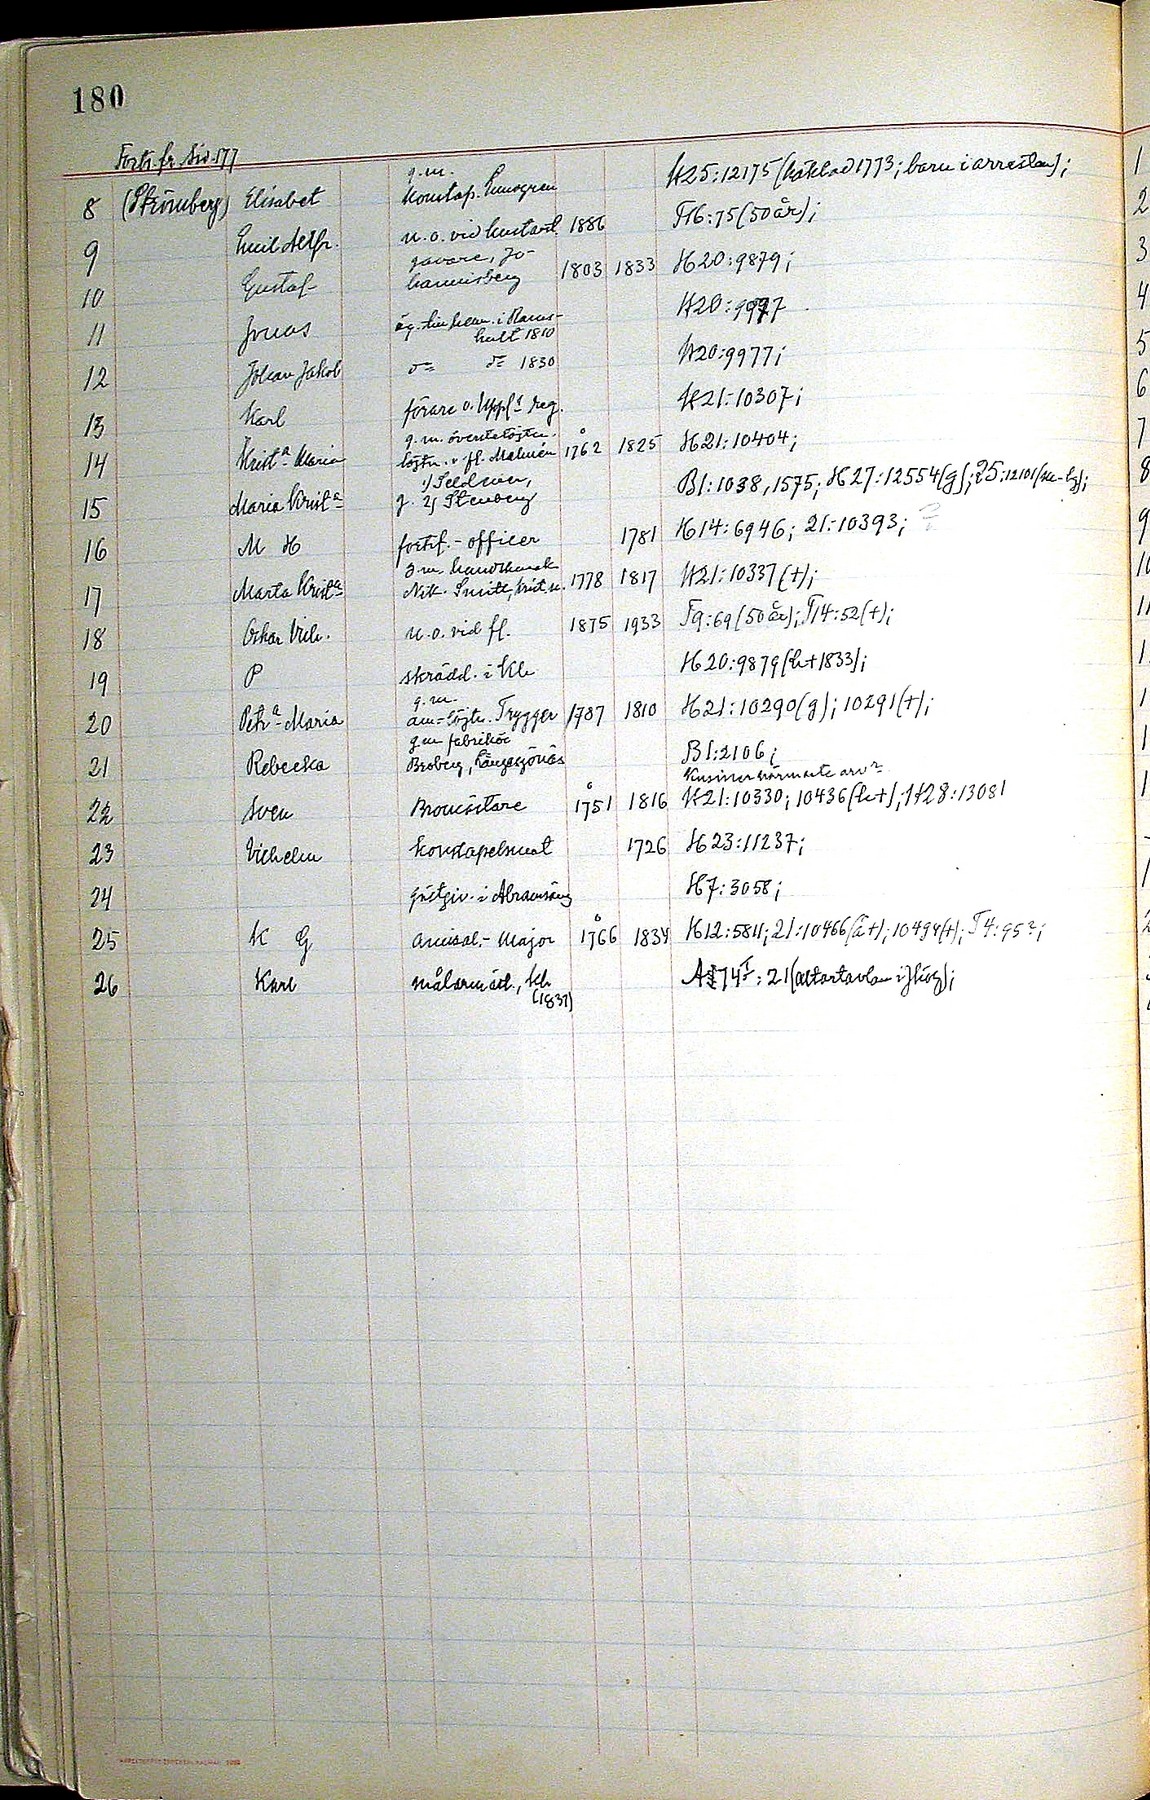 180
Forts. fr. sid. 177
8 (Strömberg) Elisabet g.m. konstap. H25:12175 (häktad 1773; barn i arresten);
9 Emil Alfr. u.o. vid kustart. 1886 T16:75 (50 år);
10 Gustaf garvare, Johannisberg 1803 1833 H20:9879;
11 Jonas äg. 1810 H20:9977
12 Johan Jakob d:o d:o 1830 H20:9977;
13 Karl förare v. Uppl. reg. H21:10307;
14 Krist:a Maria g.m. överstelöjtn. löjtn. v. fl. Malmén 1762 1825 H21:10404;
15 Maria Krist:a g. 1) 2) Stenberg B1:1038, 1575; H27:12554 (g); 25:12101
16 M H fortif.-officer 1781 H14:6946; 21:10393;
17 Marta Krist:a g.m. handskmak. Nik. Smitt, Krist.n. 1778 1817 H21:10337 (+);
18 Oskar Vilh. u.o. vid fl. 1875 1933 T9:69 (50 år); T14:52 (+);
19 P skrädd. i Kla H20:9879 (h+1833);
20 Petr:a Maria g.m. am-löjtn. Trygger 1787 1810 H21:10290 (g); 10291 (+);
21 Rebecka g.m. fabrikör Broberg, Långasjönäs B1:2106;
22 Sven Bromästare 1751 1816 H21:10330; 10436 (h+); H28:13081
Kusiner närmaste arv:r
23 Vilhelm konstapelsmat 1726 H23:11237;
24 gästgiv. i Abramsäng H7:3058;
25 K G amiral.-major 1766 1834 H12:5811; 21:10466 (å+); 10494 (+); T4:95?;
26 Karl målarmäst., Kla (1837) 74:21 (altartavlan i);